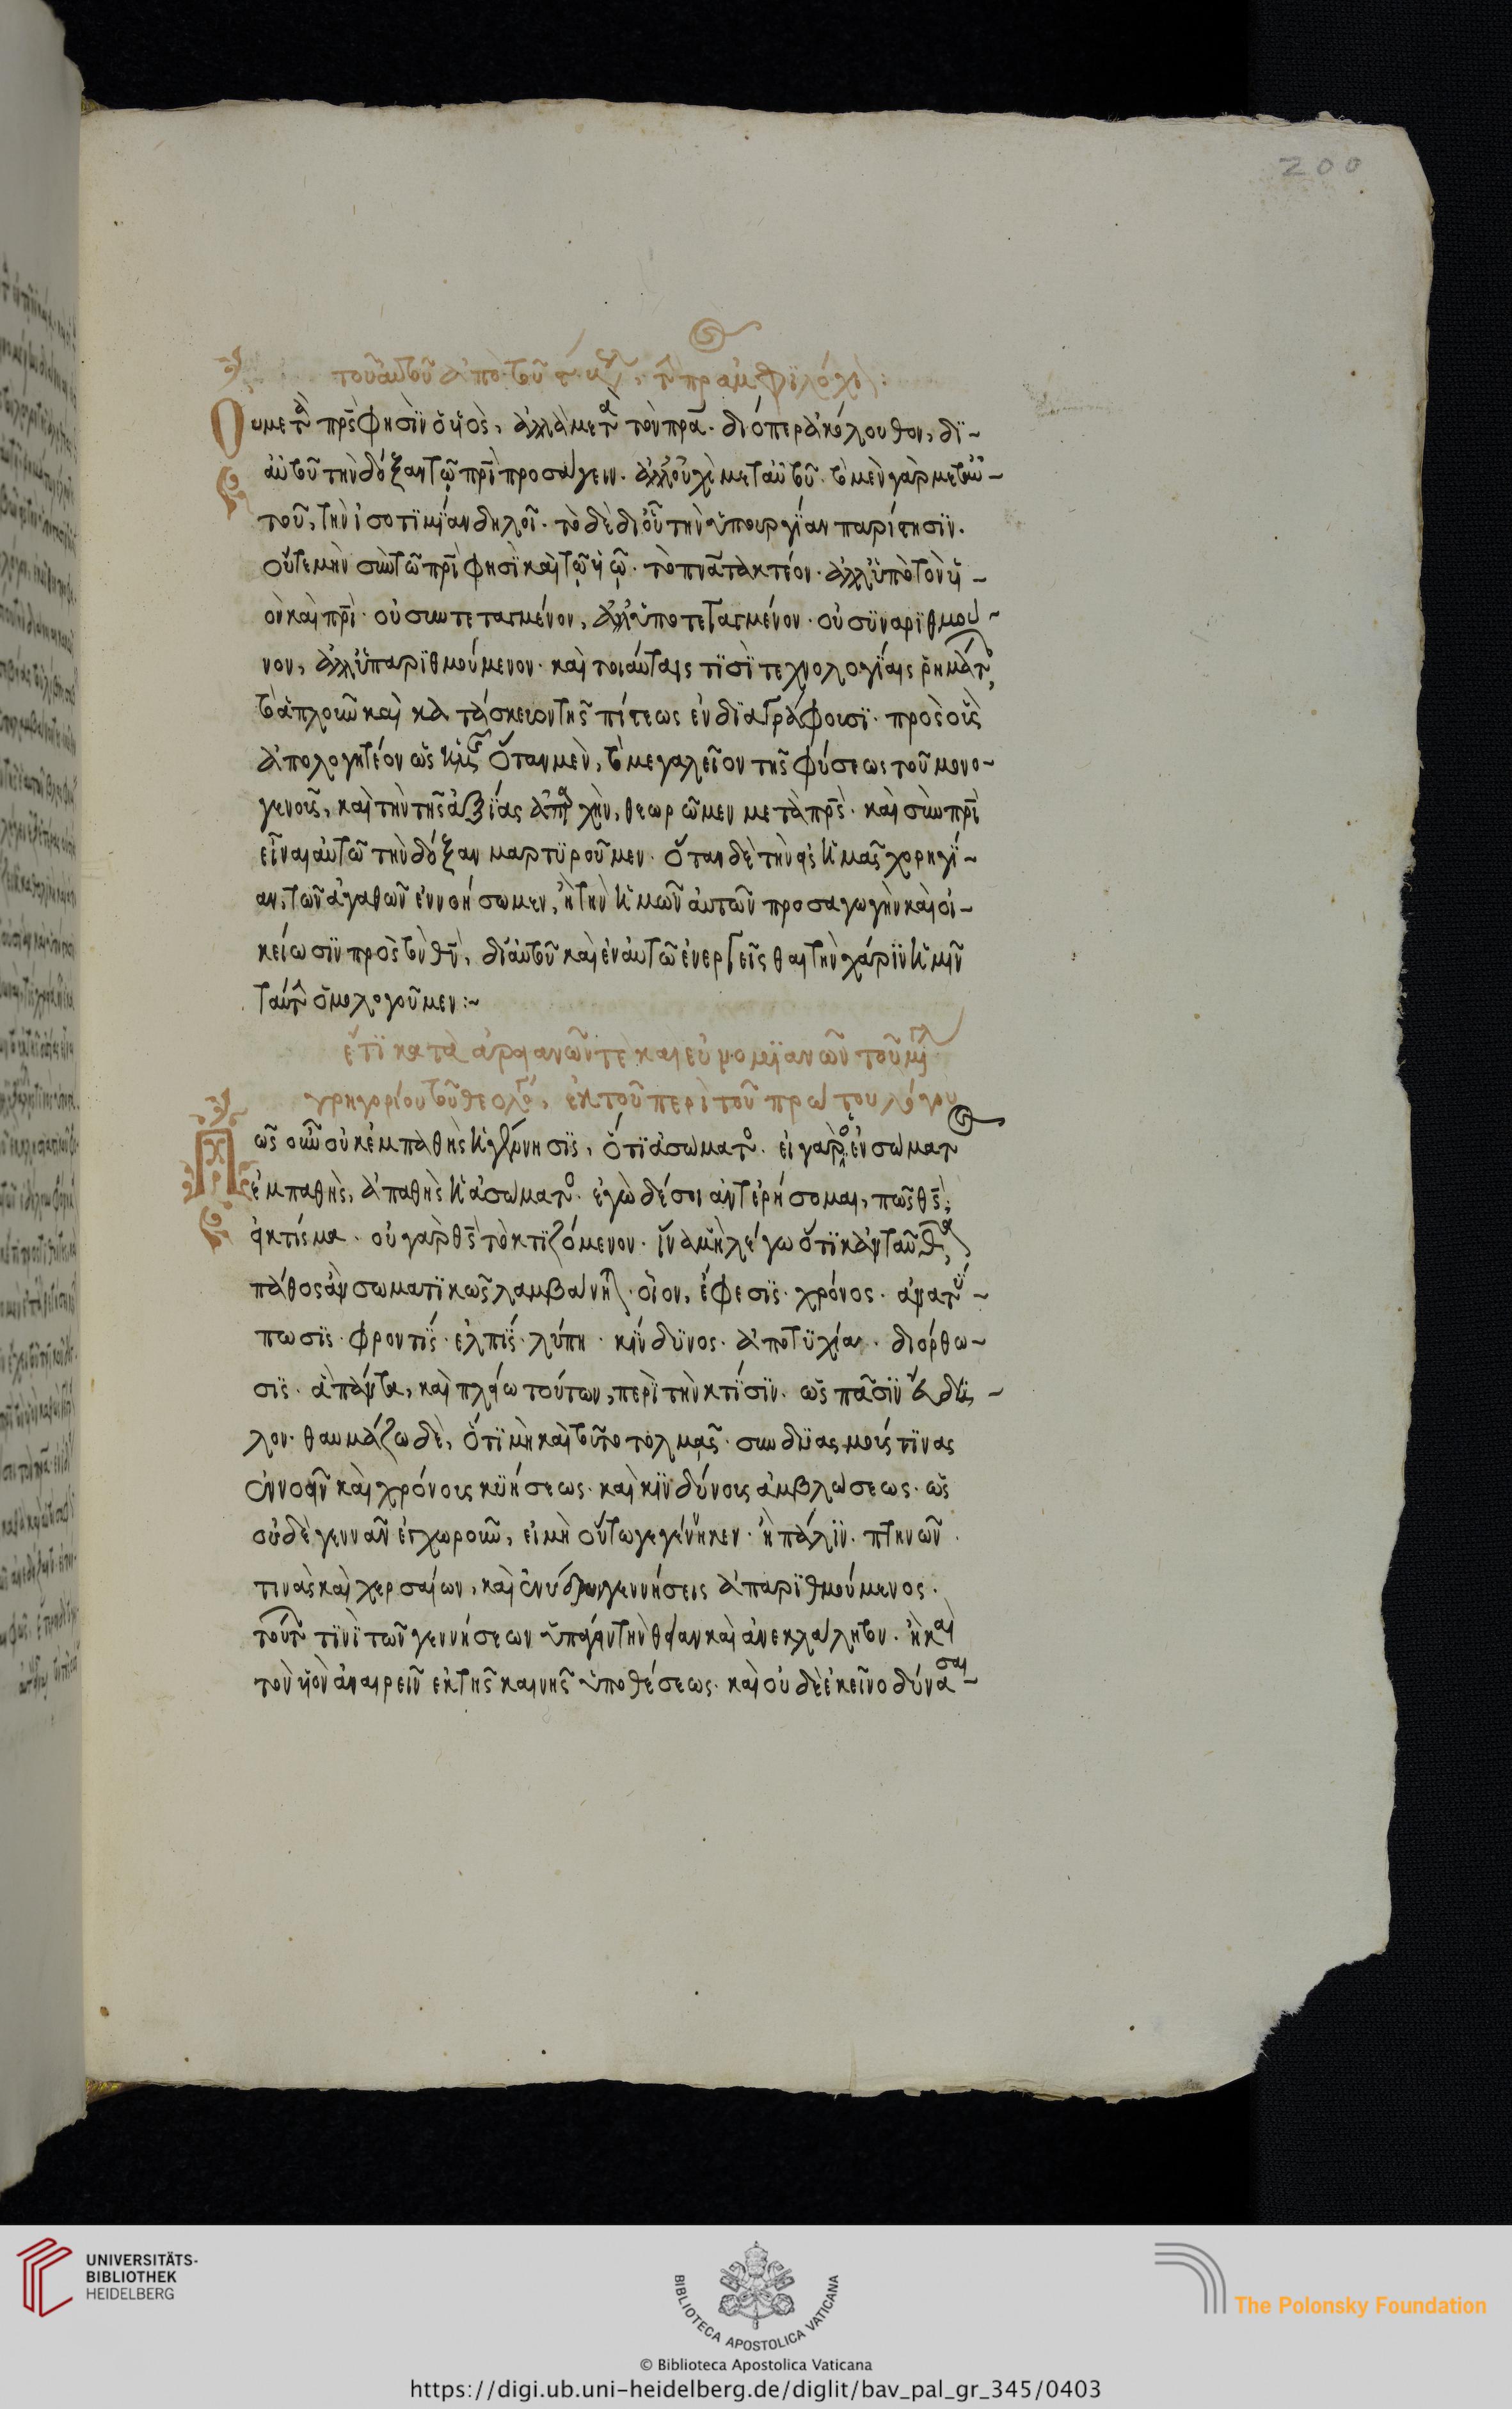 200
τοῦ αὐτοῦ ἀπὸ τοῦ
Οὐ μετὰ πρς φησὶν ὁ υἱὸς, ἀλλὰ μετὰ τὸν πρα. διόπερ ἀκόλουθον, δι-
αὐτοῦ τὴν δόξαν τῷ πρι προσάγειν. ἀλλ' οὐχὶ μετ' αὐτοῦ. τὸ μὲν γὰρ μετ' αὐ-
τοῦ, τὴν ἰσοτιμίαν δηλοῖ. τὸ δὲ δι' οὗ τὴν ὑπουργίαν παρίστησιν.
οὔτε μὴν σὺν τῷ πρι φησὶ καὶ τῷ υἱῷ. τὸ πνα τακτέον. ἀλλ' ὑπὸ τὸν υἱ-
ὸν καὶ πρι. οὐ συντεταγμένον, ἀλλ' ὑποτεταγμένον. οὐ συναριθμού-
νον, ἀλλ' ὑπαριθμούμενον. καὶ τοιαύταις τισὶ τεχνολογίαις ῥημάτ
τὸ ἁπλοῦν καὶ κατάσκευον τῆς πίστεως ἐνδιαστράφουσι. πρὸς οὓς
ἀπολογητέον ὡς ἡμεῖς ὅταν μὲν, τὸ μεγαλεῖον τῆς φύσεως τοῦ μονο-
γενοῦς, καὶ τὴν τῆς ἀξίας ὑπεροχὴν, θεωρῶμεν μετὰ πρς. καὶ σὺν πρι
εἶναι αὐτῷ τὴν δόξαν μαρτυροῦμεν. ὅταν δὲ τὴν εἰς ἡμᾶς χορηγί-
αν, τῶν ἀγαθῶν ἐννοήσωμεν, ἢ τὴν ἡμῶν αὐτῶν προσαγωγὴν καὶ οἰ-
κείωσιν πρὸς τὸν θν, δι' αὐτοῦ καὶ ἐν αὐτῷ ἐνεργεῖσθαι τὴν χάριν ἡμῖν
ταύτ ὁμολογοῦμεν:~
ἔτι κατὰ ἀρειανῶν τε καὶ εὐνομιανῶν τοῦ
γρηγορίου τοῦ θεολό, ἐκ τοῦ περὶ τοῦ πρώτου λόγου
Πῶς οὖν οὐκ ἐμπαθὴς ἡ γέννησις, ὅτι ἀσώματος. εἰ γὰρ ἡ ἐνσώματ
ἐμπαθὴς, ἀπαθὴς ἡ ἀσώματος. ἐγὼ δέ σοι ἀντερήσομαι, πῶς θς;
εἰ κτίσμα. οὐ γὰρ θς τὸ κτιζόμενον. ἵνα μὴ λέγω ὅτι κἀνταῦθα
πάθος ἂν σωματικῶς λαμβάνηται. οἷον, ἔφεσις. χρόνος. ἀνατύ-
πωσις. φροντίς. ἐλπίς. λύπη. κίνδυνος. ἀποτυχία. διόρθω-
σις. ἃ πάντα, καὶ πλείω τούτων, περὶ τὴν κτίσιν. ὡς πᾶσιν εὔδη-
λον. θαυμάζω δὲ, ὅτι μὴ καὶ τοῦτο τολμᾷς. συνδυασμούς τινας
ἐννοεῖν καὶ χρόνους κυήσεως. καὶ κινδύνους ἀμβλώσεως. ὡς
οὐδὲ γεννᾶν ἐγχωροῦν, εἰ μὴ οὕτω γεγέννηκεν. ἢ πάλιν. πτηνῶν
τινὰς καὶ χερσαίων, καὶ ἐνύδρων γεννήσεις ἀπαριθμούμενος.
τούτ τινὶ τῶν γεννήσεων ὑπάγειν τὴν θείαν καὶ ἀνεκλάλητον. ἢ καὶ
τὸν υἱὸν ἀναιρεῖν ἐκ τῆς καινῆς ὑποθέσεως. καὶ οὐδὲ ἐκεῖνο δύνασαι-
UNIVERSITÄTS-
BIBLIOTHEK
HEIDELBERG
BIBLIOTECA APOSTOLICA VATICANA
The Polonsky Foundation
© Biblioteca Apostolica Vaticana
https://digi.ub.uni-heidelberg.de/diglit/bav_pal_gr_345/0403